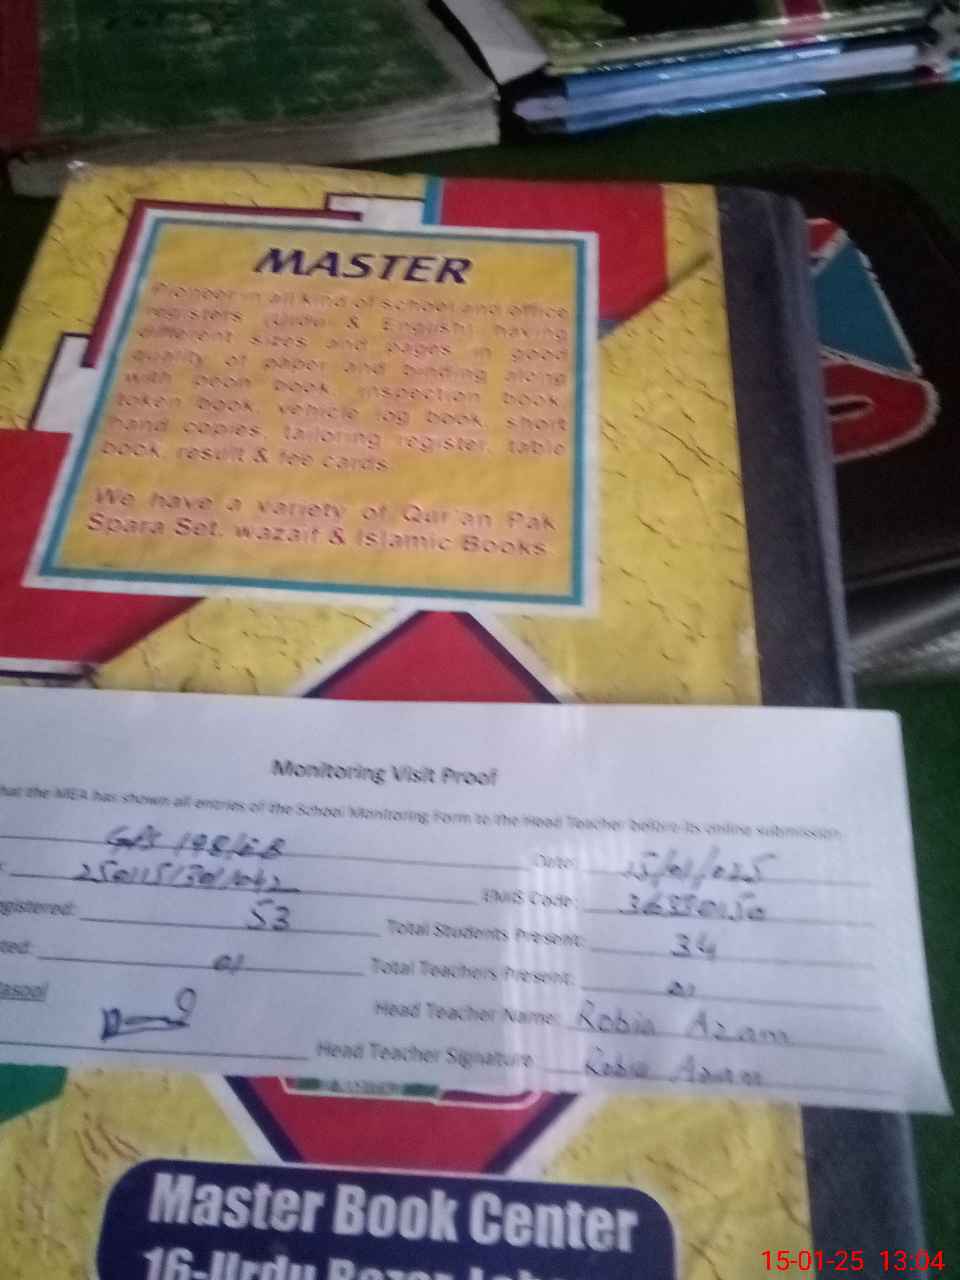 MASTER
Pioneer in all kind of school and office
registers (Urdu & English) having
different sizes and pages in good
quality of paper and binding along
with peon book, inspection book,
token book, vehicle log book, short
hand copies, tailoring register, table
book, result & fee cards.
We have a variety of Qur'an Pak
Spara Set, wazaif & Islamic Books
Monitoring Visit Proof
hat the MEA has shown all entries of the School Monitoring Form to the Head Teacher before its online submission
GPS 198/EB Date: 15/01/025
EMIS Code: 36330150
gistered: 53 Total Students Present: 34
ted: 01 Total Teachers Present: 01
Rasool Head Teacher Name: Robia Azam
Head Teacher Signature Robia Azam
Master Book Center
16-Urdu Bazar
15-01-25 13:04